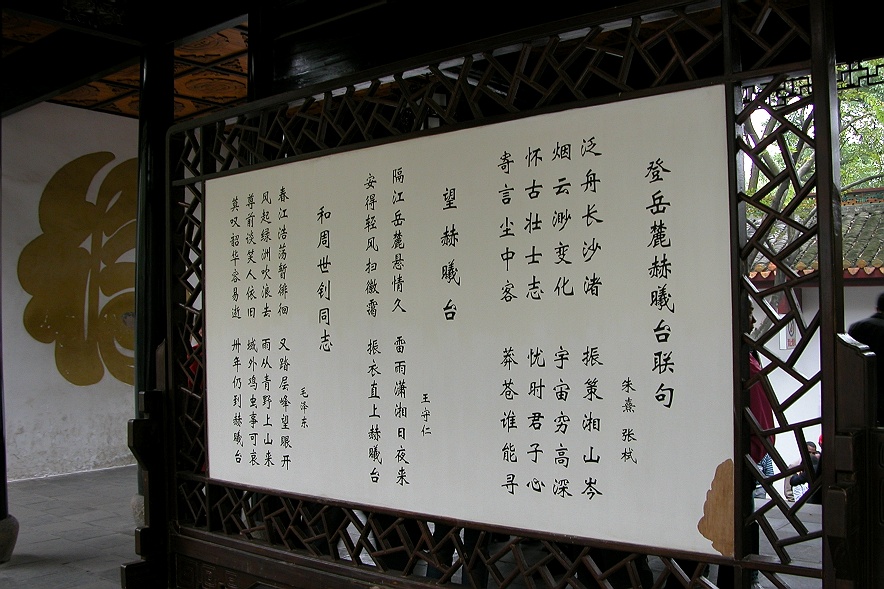 登岳麓赫曦台联句
朱熹 张栻
泛舟长沙渚 振策湘山岑
烟云渺变化 宇宙穷高深
怀古壮士志 忧时君子心
寄言尘中客 莽苍谁能寻
望赫曦台
王守仁
隔江岳麓悬情久 雷雨潇湘日夜来
安得轻风扫微霭 振衣直上赫曦台
和周世钊同志
毛泽东
春江浩荡暂徘徊 又踏层峰望眼开
风起绿洲吹浪去 雨从青野上山来
尊前谈笑人依旧 域外鸡虫事可哀
莫叹韶华容易逝 卅年仍到赫曦台